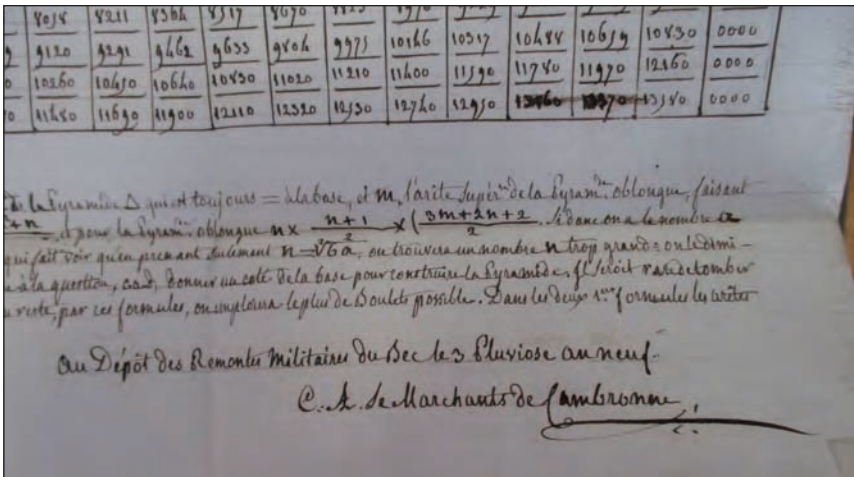 8058 8211 8364 8517 8670
9120 9291 9462 9633 9804 9975 10146 10317 10488 10659 10830 0000
10260 10450 10640 10830 11020 11210 11400 11590 11780 11970 12160 0000
11480 11690 11900 12110 12320 12530 12740 12950 13160 13370 13580 0000
de la Pyramide Δ qui est toujours = à la base, et m, l'arite supérre de la Pyramde oblongue, faisant
+n et pour la Pyramde oblongue n × n+1/2 × (3m+2n+2/2. Si donc on a le nombre a
qui fait voir qu'en prenant seulement n = ∛6a, on trouvera un nombre n trop grand: on le dimi-
e à la question, c.a.d, donner un coté de la base pour construire la Pyramide. Il seroit rare de tomber
u reste, par ces formules, on employera le plus de Boulets possible. Dans les deux 1res formules les arites
au Dépôt des Remontes Militaires du Bec le 3 Pluviose an neuf.
C. A. de Marchants de Cambronne